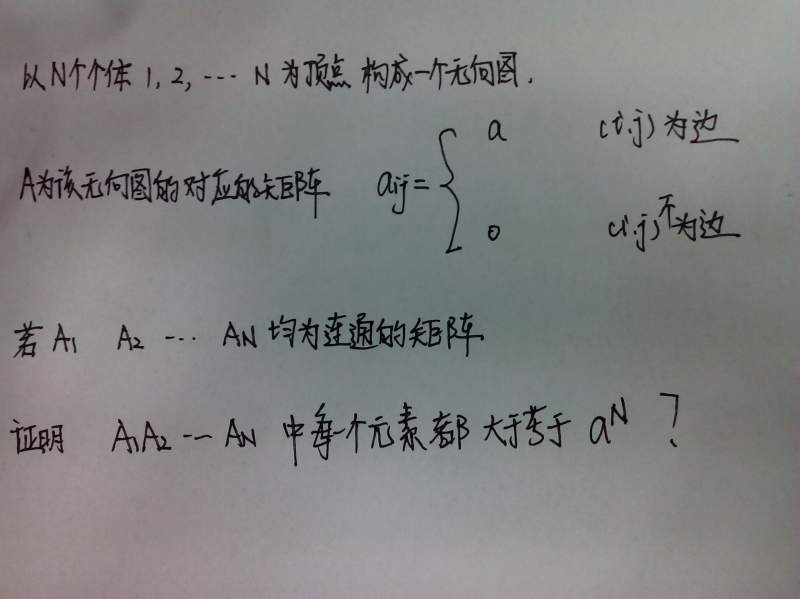 以N个个体 1, 2, ... N 为顶点 构成一个无向图.
A为该无向图的对应的矩阵 aij = { a (i.j) 为边
0 (i.j) 不为边
若 A1 A2 ... AN 均为连通的矩阵
证明 A1A2 ... AN 中每个元素都大于等于 a^N ?